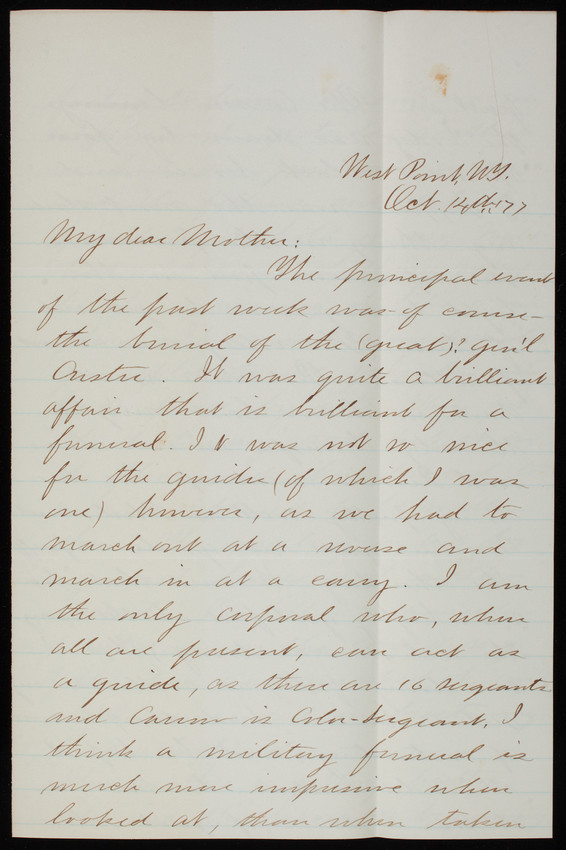 West Point, N.Y.
Oct. 14th '77
My dear Mother:
The principal event
of the past week was of course
the burial of the (great)? Gen'l
Custer. It was quite a brilliant
affair that is brilliant for a
funeral. It was not so nice
for the guides (of which I was
one) however, as we had to
march out at a reverse and
march in at a carry. I am
the only corporal who, when
all are present, can act as
a guide, as there are 16 sergeants
and Carson is Color-Sergeant. I
think a military funeral is
much more impressive when
looked at, than when taken